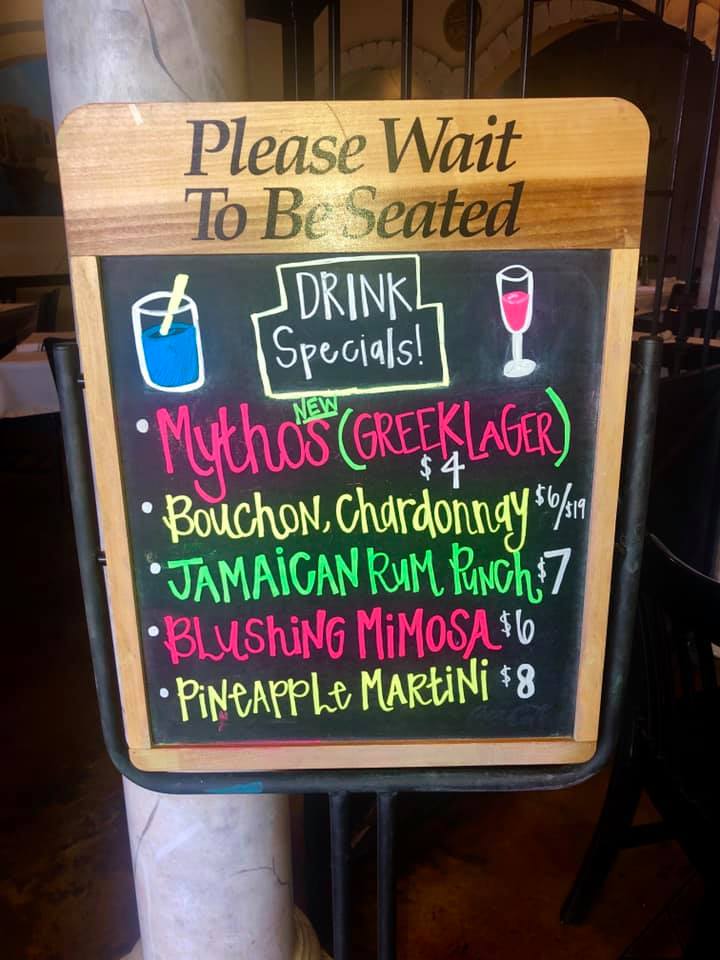 Please Wait
To Be Seated
DRINK
Specials!
NEW
• Mythos (GREEK LAGER)
$4
• Bouchon, Chardonnay $6/$19
• JAMAiCAN RuM PuNCh $7
• BLushiNG MiMOSA $6
• PiNeAPPLe MARtiNi $8